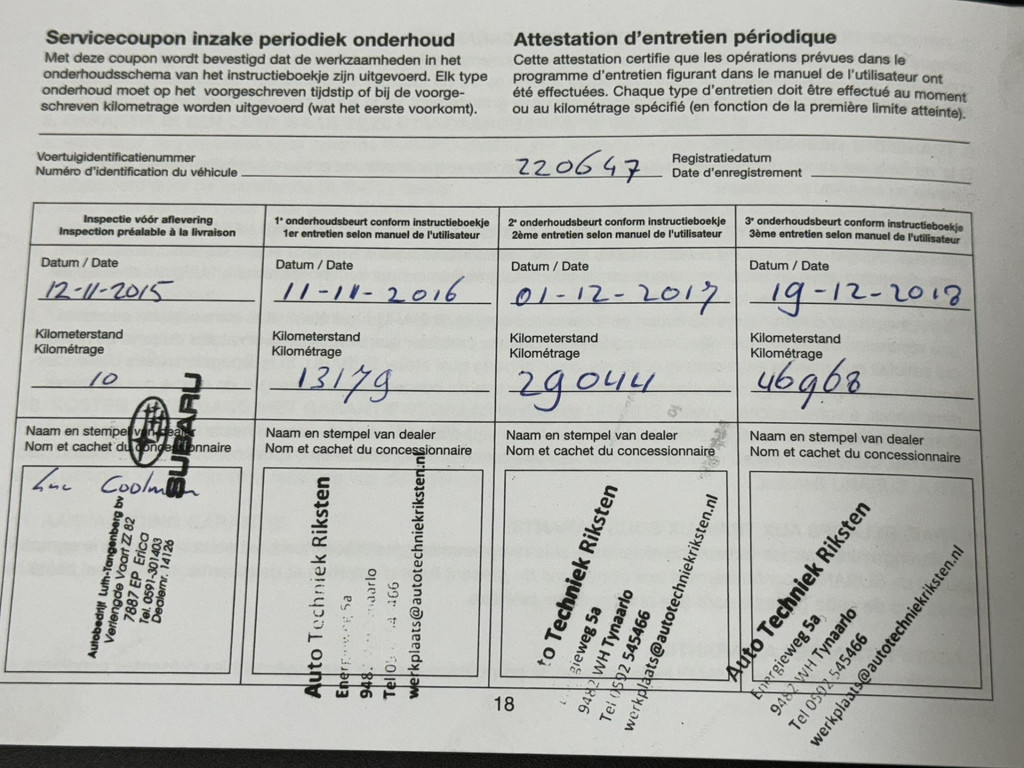 Servicecoupon inzake periodiek onderhoud
Met deze coupon wordt bevestigd dat de werkzaamheden in het
onderhoudsschema van het instructieboekje zijn uitgevoerd. Elk type
onderhoud moet op het voorgeschreven tijdstip of bij de voorge-
schreven kilometrage worden uitgevoerd (wat het eerste voorkomt).
Attestation d'entretien périodique
Cette attestation certifie que les opérations prévues dans le
programme d'entretien figurant dans le manuel de l'utilisateur ont
été effectuées. Chaque type d'entretien doit être effectué au moment
ou au kilométrage spécifié (en fonction de la première limite atteinte).
Voertuigidentificatienummer
Numéro d'identification du véhicule
220647
Registratiedatum
Date d'enregistrement
Inspectie vóór aflevering
Inspection préalable à la livraison
Datum / Date
12-11-2015
Kilometerstand
Kilométrage
10
Naam en stempel van dealer
Nom et cachet du concessionnaire
SUBARU
Luc Coolman
Autobedrijf Luth-Tangenberg bv
Verlengde Vaart ZZ 82
7887 EP Erica
Tel. 0591-301403
Dealernr. 14126
1e onderhoudsbeurt conform instructieboekje
1er entretien selon manuel de l'utilisateur
Datum / Date
11-11-2016
Kilometerstand
Kilométrage
13179
Naam en stempel van dealer
Nom et cachet du concessionnaire
Auto Techniek Riksten
948
Tel 466
werkplaats@autotechniekriksten.nl
2e onderhoudsbeurt conform instructieboekje
2ème entretien selon manuel de l'utilisateur
Datum / Date
01-12-2017
Kilometerstand
Kilométrage
29044
Naam en stempel van dealer
Nom et cachet du concessionnaire
to Techniek Riksten
gieweg 5a
9482 WH Tynaarlo
Tel 0592 545466
werkplaats@autotechniekriksten.nl
3e onderhoudsbeurt conform instructieboekje
3ème entretien selon manuel de l'utilisateur
Datum / Date
19-12-2018
Kilometerstand
Kilométrage
46968
Naam en stempel van dealer
Nom et cachet du concessionnaire
Auto Techniek Riksten
Energieweg 5a
9482 WH Tynaarlo
Tel 0592 545466
werkplaats@autotechniekriksten.nl
18